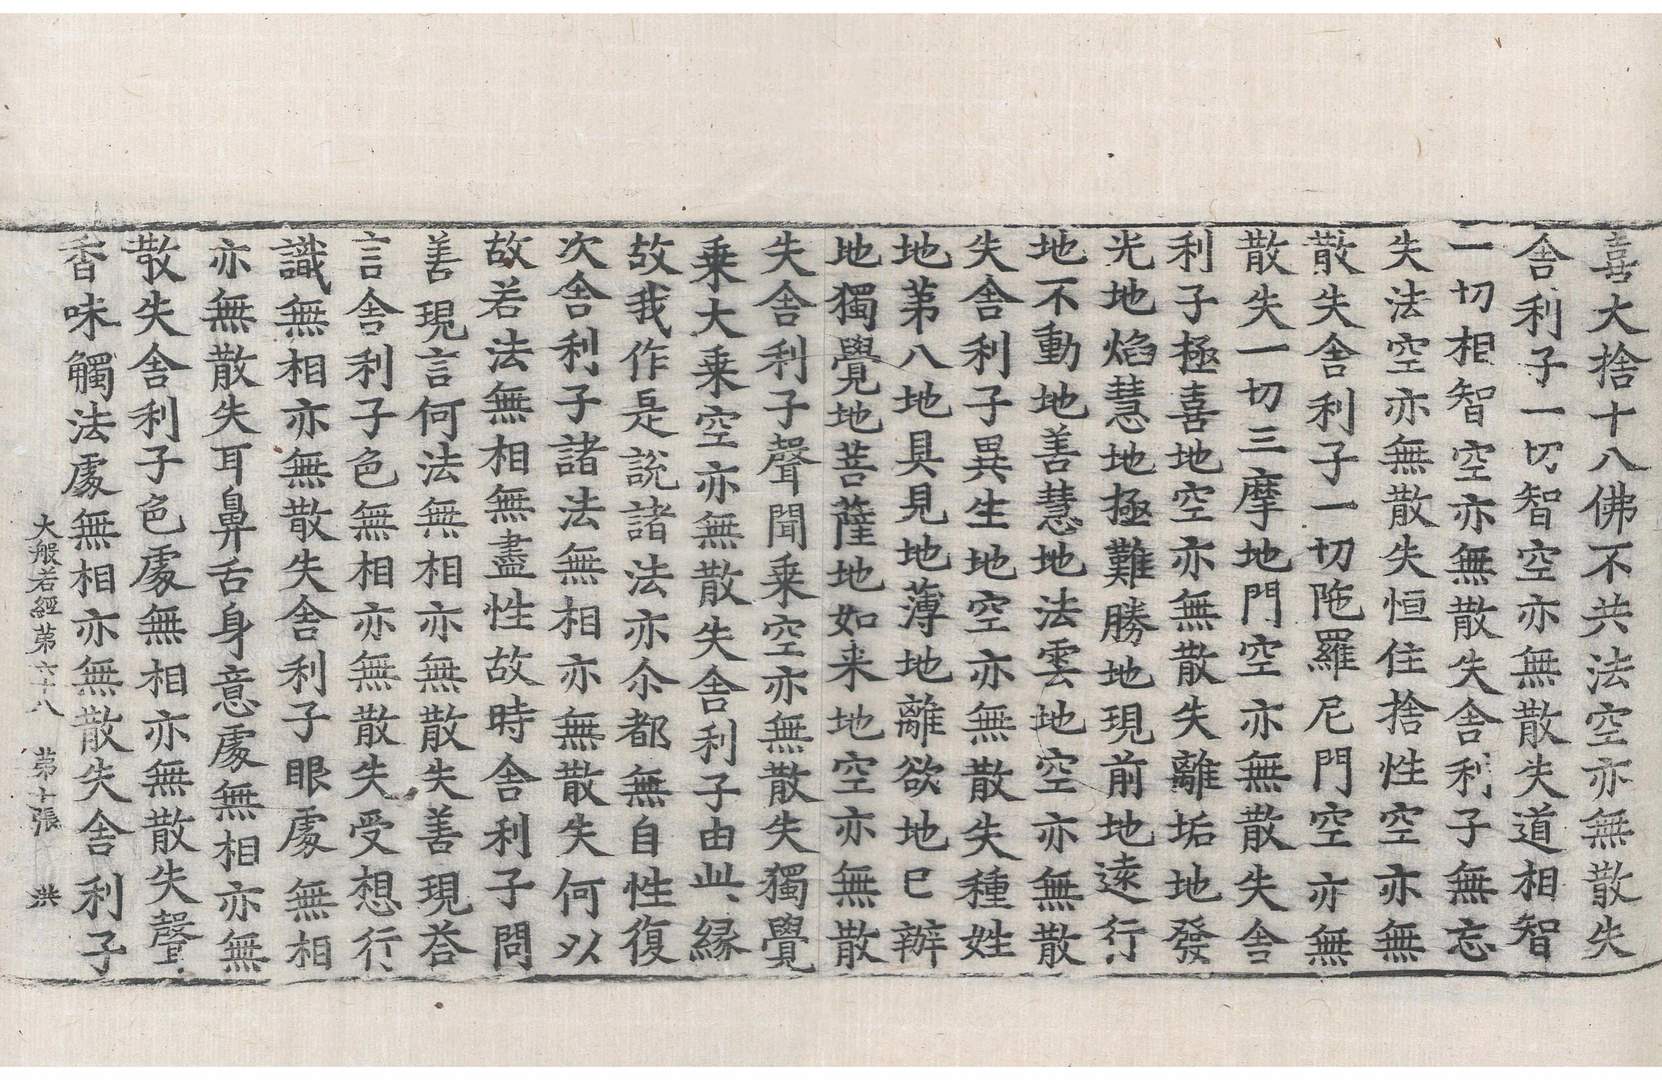 喜大捨十八佛不共法空亦無散失
舎利子一切智空亦無散失道相智
一切相智空亦無散失舎利子無忘
失法空亦無散失恒住捨性空亦無
散失舎利子一切陁羅尼門空亦無
散失一切三摩地門空亦無散失舎
利子極喜地空亦無散失離垢地發
光地焰慧地極難勝地現前地遠行
地不動地善慧地法雲地空亦無散
失舎利子異生地空亦無散失種姓
地苐八地具見地薄地離欲地已辦
地獨覺地菩薩地如来地空亦無散
失舎利子聲聞乗空亦無散失獨覺
乗大乗空亦無散失舎利子由此縁
故我作是說諸法亦尒都無自性復
次舎利子諸法無相亦無散失何以
故若法無相無盡性故時舎利子問
善現言何法無相亦無散失善現荅
言舎利子色無相亦無散失受想行
識無相亦無散失舎利子眼處無相
亦無散失耳鼻舌身意處無相亦無
散失舎利子色處無相亦無散失聲
香味觸法處無相亦無散失舎利子
大般若經苐六十八　苐十張　洪